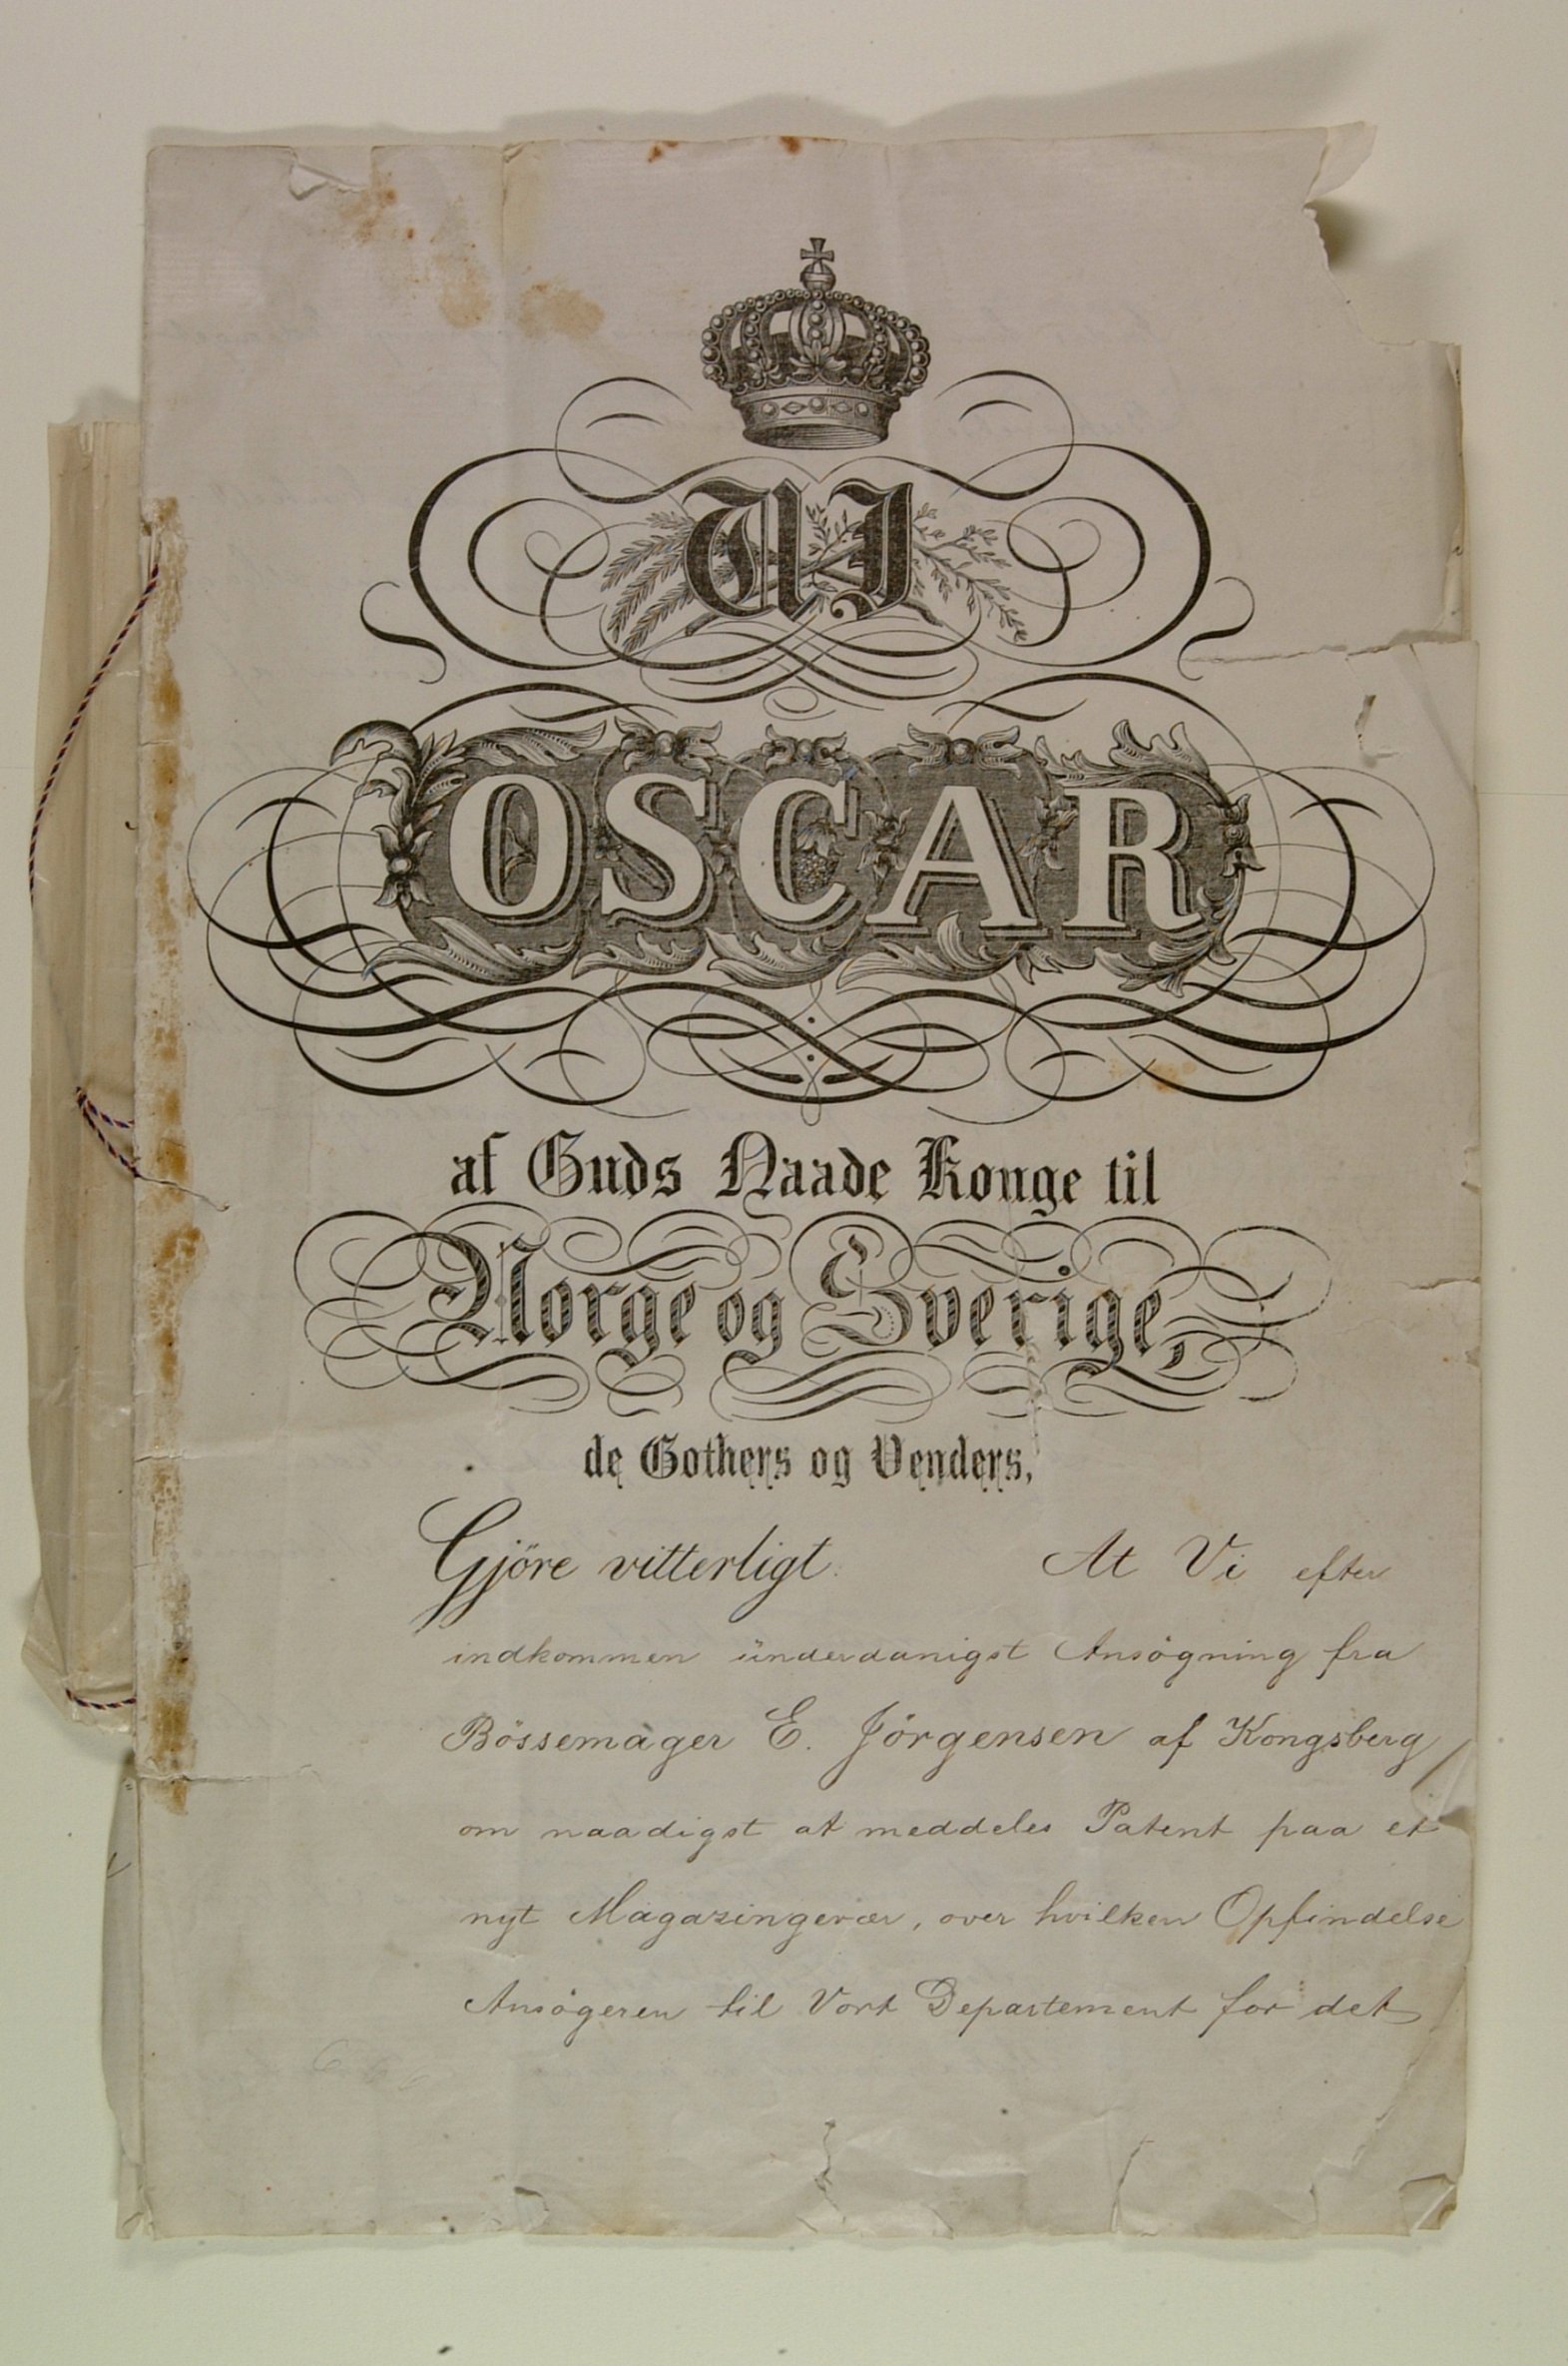 VI
OSCAR
af Guds Naade Konge til
Norge og Sverige,
de Gothers og Venders,
Gjöre vitterligt: At Vi efter
indkommen underdanigst Ansögning fra
Bössemager E. Jörgensen af Kongsberg
om naadigst at meddeles Patent paa et
nyt Magazingevær, over hvilken Opfindelse
Ansögeren til Vort Departement for det